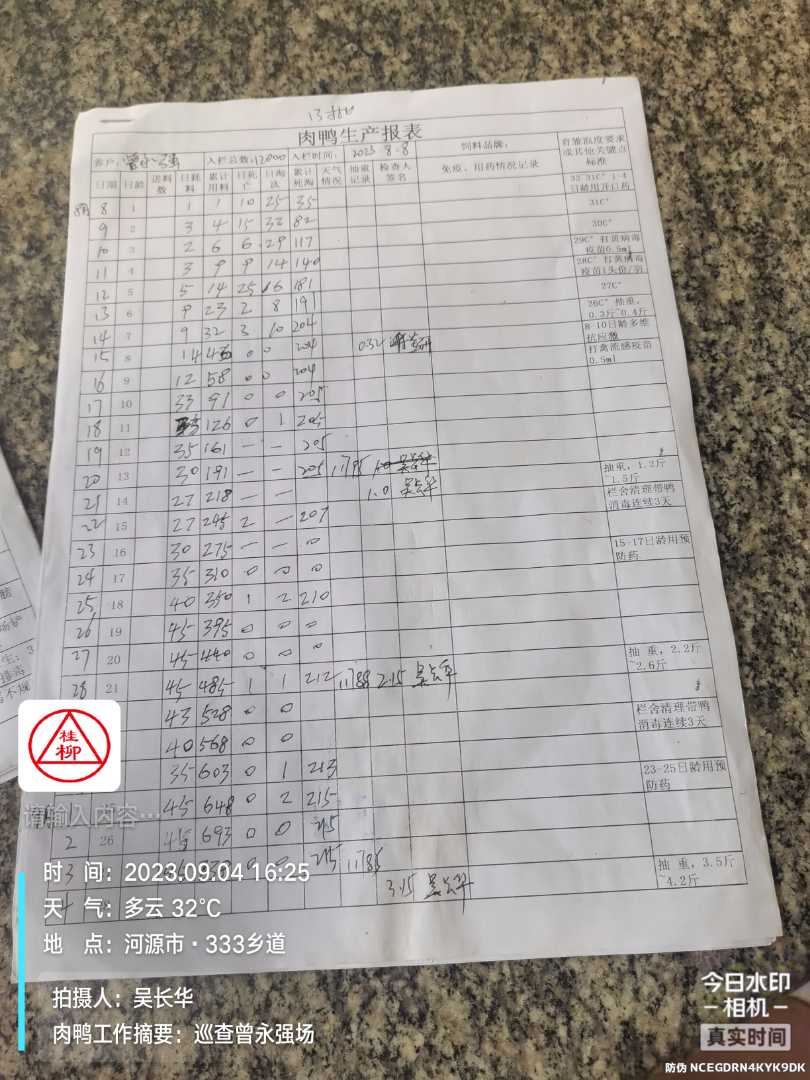 13批
肉鸭生产报表
客户: 曾永强 入栏总数: 12000 入栏时间: 2023 8.8 饲料品牌: 育雏温度要求或其他关键点标准
日期 日龄 送料数 日耗料 累计用料 日死亡 日淘汰 累计死淘 天气情况 抽重记录 检查人签名 免疫、用药情况记录
8月 8 1 1 1 10 25 35 32-31C°1-4日龄用开口药
9 2 3 4 15 32 82 31C°
10 3 2 6 6 29 117 30C°
11 4 3 9 9 14 140 29C°打黄病毒疫苗0.5ml
12 5 5 14 25 16 181 28C°打黄病毒疫苗1头份/羽
13 6 9 23 2 8 191 27C°
14 7 9 32 3 10 204 26C°抽重,0.3斤~0.4斤
15 8 14 46 0 0 204 8-10日龄多维抗应激
16 9 12 58 0 0 204 打禽流感疫苗0.5ml
17 10 33 91 0 0 205
18 11 126 0 1 205
19 12 35 161 — — 205
20 13 30 191 — — 205 11795 吴长华
21 14 27 218 — — 1.0 吴长华 抽重,1.2斤~1.5斤
22 15 27 245 2 — 207 栏舍清理带鸭消毒连续3天
23 16 30 275 — — 0
24 17 35 310 0 0 0 15-17日龄用预防药
25 18 40 350 1 2 210
26 19 45 395 0 0 0
27 20 45 440 0 0 0
28 21 45 485 1 1 212 11788 2.15 吴长华 抽重,2.2斤~2.6斤
43 528 0 0
40 568 0 0 栏舍清理带鸭消毒连续3天
35 603 0 1 213
45 648 0 2 215 23-25日龄用预防药
2 26 45 693 0 0 215
3 0 0 215 11785
3.15 吴长华 抽重,3.5斤~4.2斤
桂柳
请输入内容…
时 间: 2023.09.04 16:25
天 气: 多云 32℃
地 点: 河源市·333乡道
拍摄人: 吴长华
肉鸭工作摘要: 巡查曾永强场
今日水印
相机
真实时间
防伪 NCEGDRN4KYK9DK